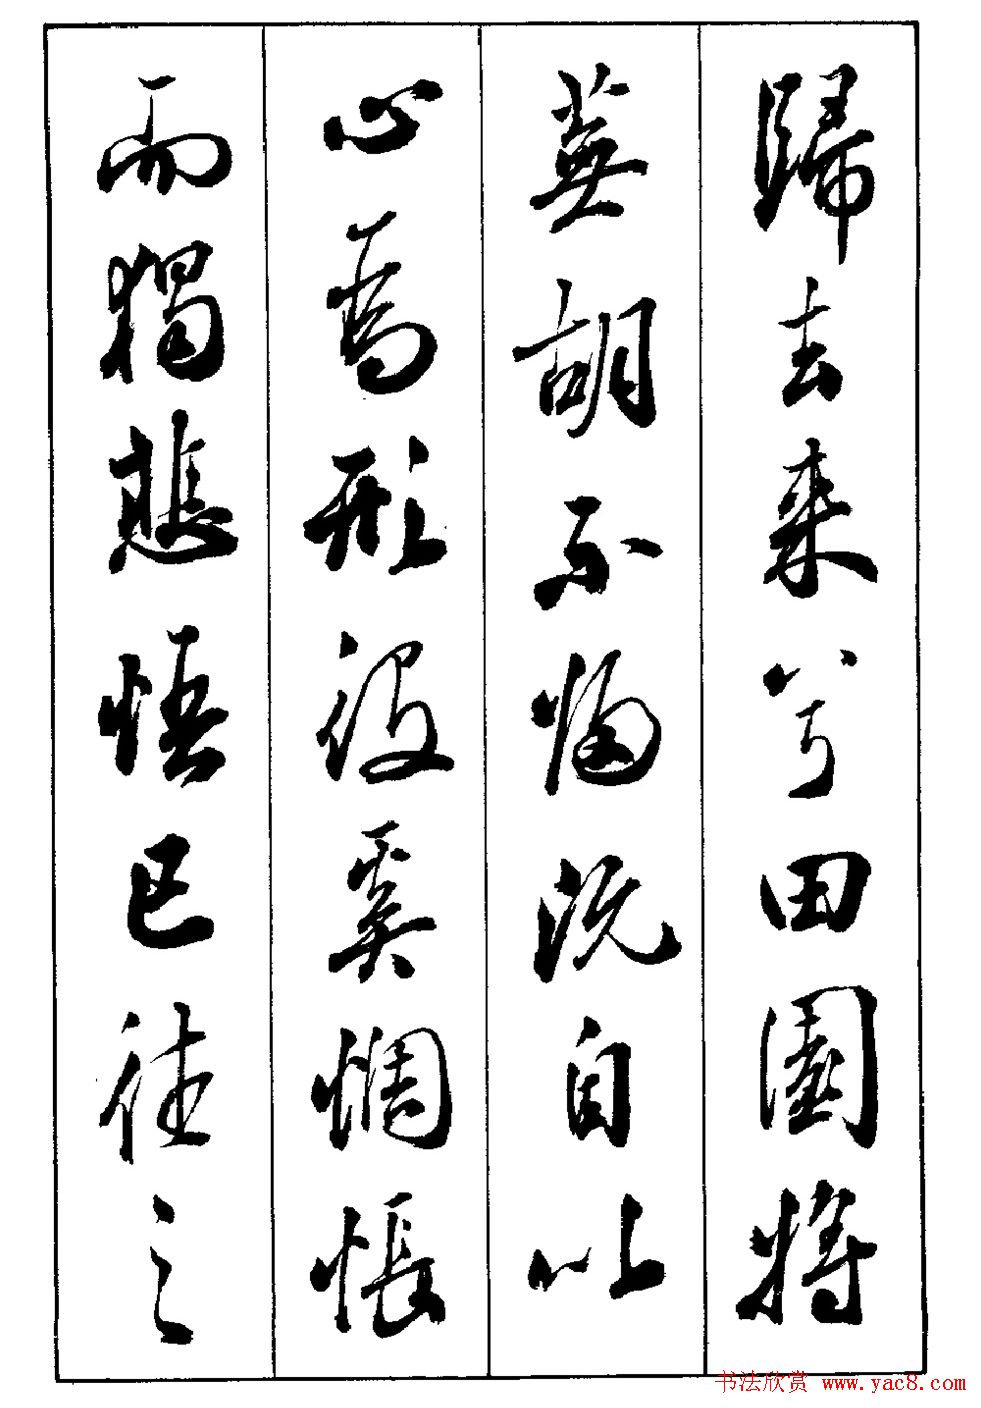 歸去來兮田園將
蕪胡不歸既自以
心為形役奚惆悵
而獨悲悟已往之
书法欣赏 www.yac8.com